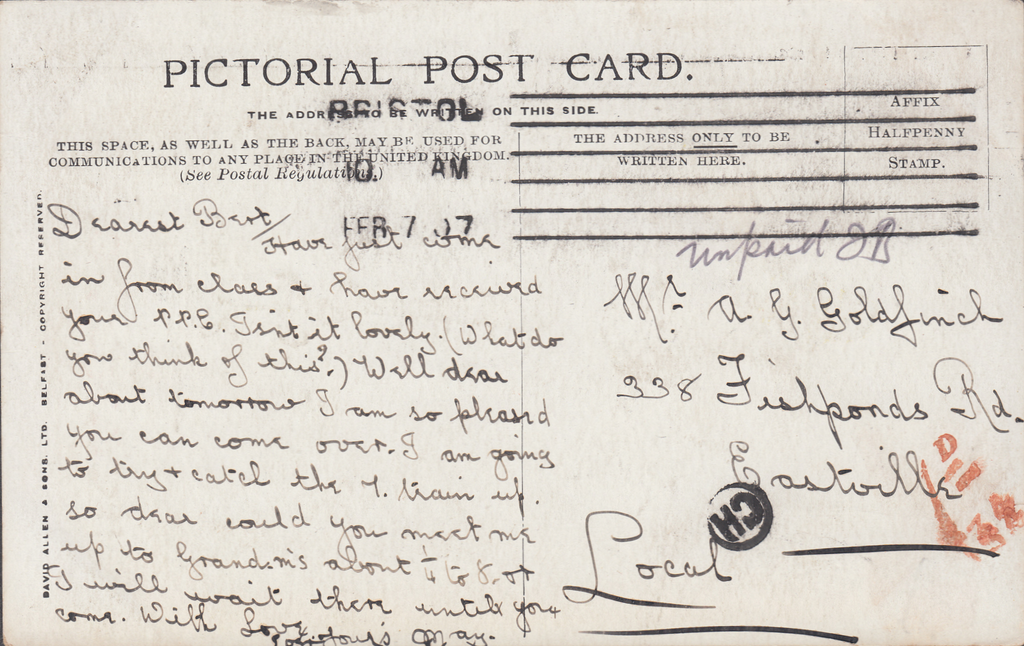 PICTORIAL POST CARD.
THE ADDRESS TO BE WRITTEN ON THIS SIDE.
BRISTOL
10. AM
FEB 7 17
THIS SPACE, AS WELL AS THE BACK, MAY BE USED FOR
COMMUNICATIONS TO ANY PLACE IN THE UNITED KINGDOM.
(See Postal Regulations.)
THE ADDRESS ONLY TO BE
WRITTEN HERE.
AFFIX
HALFPENNY
STAMP.
DAVID ALLEN & SONS. LTD. BELFAST - COPYRIGHT RESERVED.
Dearest Bert/
Have just come
in from class & have received
your P.P.C. Isnt it lovely. (What do
you think of this?) Well dear
about tomorrow I am so pleased
you can come over. I am going
to try & catch the 7. train up.
so dear could you meet me
up to Grandm's about ¼ to 8. or
I will wait there until you
come. With Love
May.
unpaid JB
Mr. A. G. Goldfinch
338 Fishponds Rd.
Eastville
Local
CH
D